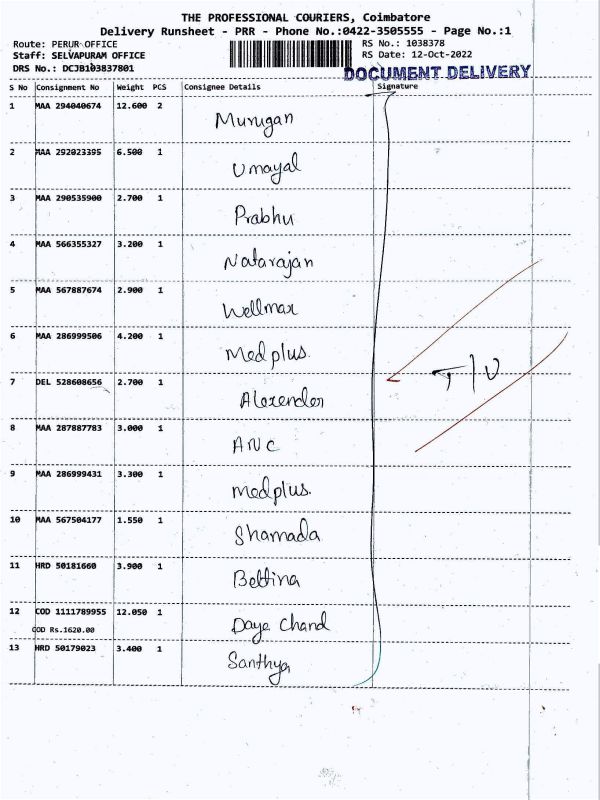 THE PROFESSIONAL COURIERS, Coimbatore
Delivery Runsheet - PRR - Phone No.:0422-3505555 - Page No.:1
Route: PERUR OFFICE
RS No.: 1038378
Staff: SELVAPURAM OFFICE
RS Date: 12-Oct-2022
DRS No.: DCJB103837801
DOCUMENT DELIVERY
S No Consignment No Weight PCS Consignee Details Signature
1 MAA 294040674 12.600 2 Murugan
2 MAA 292023395 6.500 1 Umayal
3 MAA 290535900 2.700 1 Prabhu
4 MAA 566355327 3.200 1 Natarajan
5 MAA 567887674 2.900 1 Wellmax
6 MAA 286999506 4.200 1 Medplus.
T/U
7 DEL 528608656 2.700 1 Alexender
8 MAA 287887783 3.000 1 ANC
9 MAA 286999431 3.300 1 medplus.
10 MAA 567504177 1.550 1 Shamada
11 HRD 50181660 3.900 1 Bettina
12 COD 1111789955 12.050 1 Daya Chand
COD Rs.1620.00
13 HRD 50179023 3.400 1 Santhya